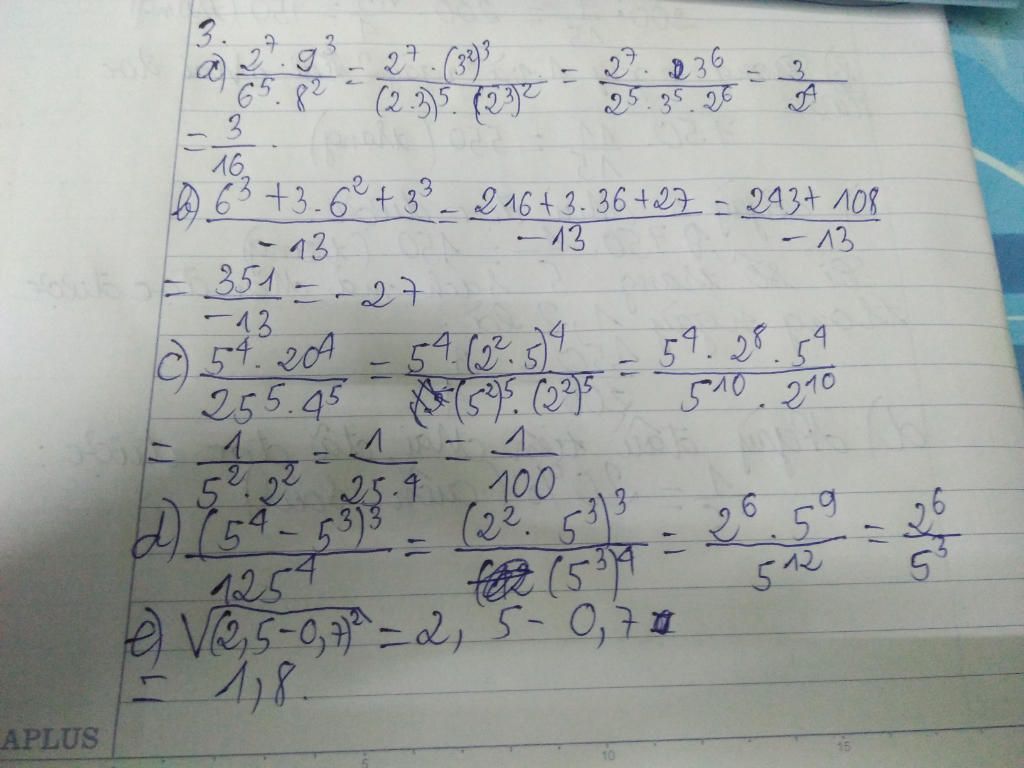 3.
a) \frac{2^7 . 9^3}{6^5 . 8^2} = \frac{2^7 . (3^2)^3}{(2.3)^5 . (2^3)^2} = \frac{2^7 . 3^6}{2^5 . 3^5 . 2^6} = \frac{3}{2^4}
= \frac{3}{16} .
b) \frac{6^3 + 3 . 6^2 + 3^3}{-13} = \frac{216 + 3 . 36 + 27}{-13} = \frac{243 + 108}{-13}
= \frac{351}{-13} = -27
c) \frac{5^4 . 20^4}{25^5 . 4^5} = \frac{5^4 . (2^2 . 5)^4}{(5^2)^5 . (2^2)^5} = \frac{5^4 . 2^8 . 5^4}{5^{10} . 2^{10}}
= \frac{1}{5^2 . 2^2} = \frac{1}{25 . 4} = \frac{1}{100}
d) \frac{(5^4 - 5^3)^3}{125^4} = \frac{(2^2 . 5^3)^3}{(5^3)^4} = \frac{2^6 . 5^9}{5^{12}} = \frac{2^6}{5^3}
e) \sqrt{(2,5 - 0,7)^2} = 2,5 - 0,7
= 1,8.
APLUS
5 10 15